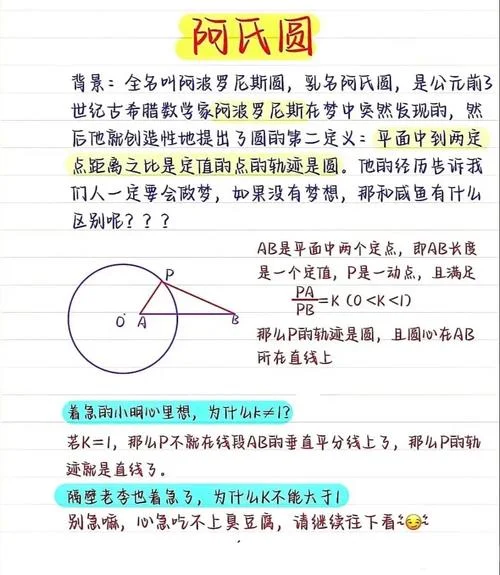 阿氏圆
背景：全名叫阿波罗尼斯圆，乳名阿氏圆，是公元前3
世纪古希腊数学家阿波罗尼斯在梦中突然发现的，然
后他就创造性地提出了圆的第二定义：平面中到两定
点距离之比是定值的点的轨迹是圆。他的经历告诉我
们人一定要会做梦，如果没有梦想，那和咸鱼有什么
区别呢？？？
AB是平面中两个定点，即AB长度
是一个定值，P是一动点，且满足
PA/PB=K（0<K<1）
那么P的轨迹是圆，且圆心在AB
所在直线上
P
O A B
着急的小明心里想，为什么k≠1？
若K=1，那么P不就在线段AB的垂直平分线上了，那么P的轨
迹就是直线了。
隔壁老李也着急了，为什么K不能大于1
别急嘛，心急吃不上臭豆腐，请继续往下看~😏~